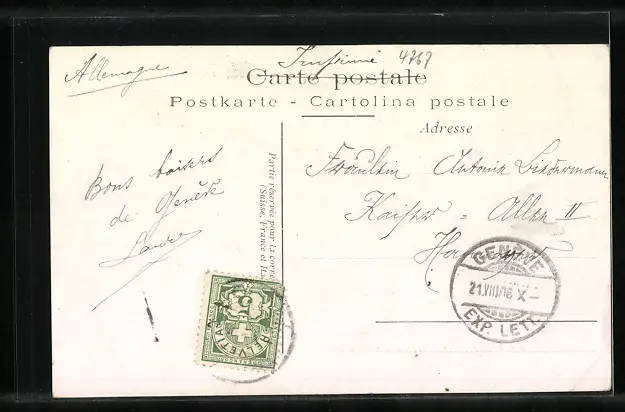 Allemagne
Imprimé 4767
Carte postale
Postkarte - Cartolina postale
Adresse
Bons baisers
de Genève
Laure
Partie réservée pour la corre
(Suisse, France et It
Fräulein Antonie Biedermann
Kaiser = Allee II
GENÈVE
21.VIII.06 X
EXP. LETT.
5
HELVETIA